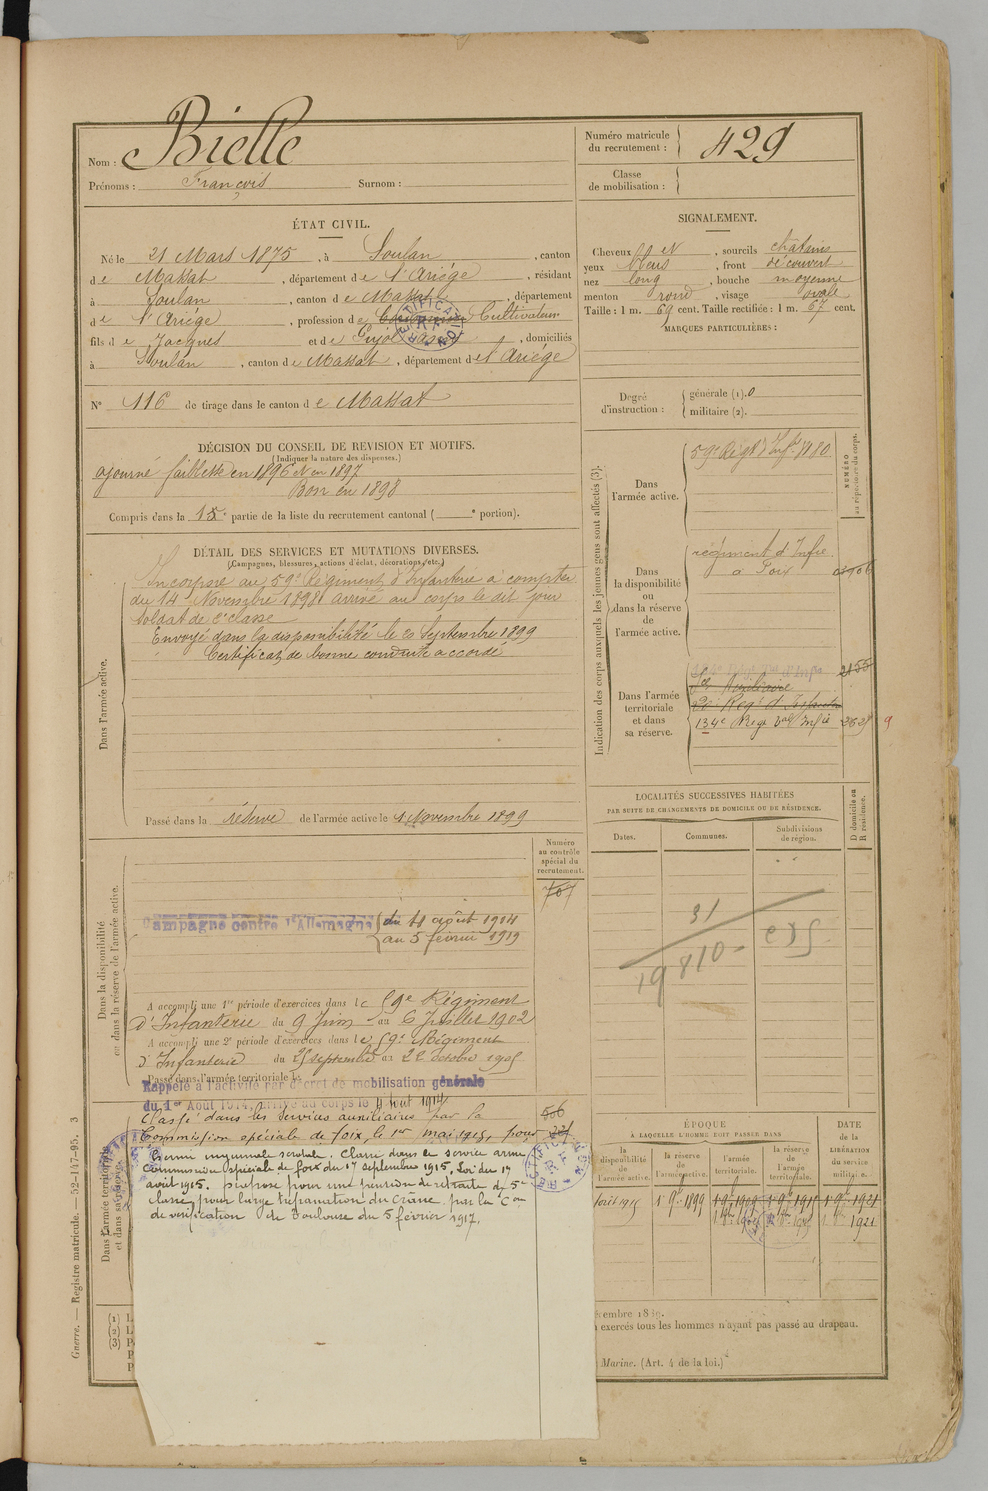 Nom : Bielle
Prénoms : François Surnom :
Numéro matricule
du recrutement : 429
Classe
de mobilisation :
ÉTAT CIVIL.
Né le 21 Mars 1875, à Soulan, canton
de Massat, département de l'Ariège, résidant
à Soulan, canton de Massat, département
de l'Ariège, profession de Cultivateur
fils de Jacques et de, domiciliés
à Soulan, canton de Massat, département de l'Ariège
N° 116 de tirage dans le canton de Massat
SIGNALEMENT.
Cheveux et, sourcils châtains
yeux bleus, front découvert
nez long, bouche moyenne
menton rond, visage ovale
Taille : 1 m. 69 cent. Taille rectifiée : 1 m. 67 cent.
MARQUES PARTICULIÈRES :
Degré
d'instruction :
générale (1). 0
militaire (2).
DÉCISION DU CONSEIL DE REVISION ET MOTIFS.
(Indiquer la nature des dispenses.)
ajourné faiblesse en 1896 et en 1897
Bon en 1898
Compris dans la 1e partie de la liste du recrutement cantonal ( e portion).
DÉTAIL DES SERVICES ET MUTATIONS DIVERSES.
(Campagnes, blessures, actions d'éclat, décorations, etc.)
Dans l'armée active.
Incorporé au 59e Régiment d'Infanterie à compter
du 14 Novembre 1898 arrivé au corps le dit jour
soldat de 2e classe
Envoyé dans la disponibilité le 20 Septembre 1899
Certificat de bonne conduite accordé
Passé dans la réserve de l'armée active le 1 Novembre 1899
Indication des corps auxquels les jeunes gens sont affectés (3).
Dans
l'armée active.
59e Régt d'Infie 1180
NUMÉRO
au répertoire du corps.
Dans
la disponibilité
ou
dans la réserve
de
l'armée active.
régiment d'Infie
à Foix
Dans l'armée
territoriale
et dans
sa réserve.
134e Régt
LOCALITÉS SUCCESSIVES HABITÉES
PAR SUITE DE CHANGEMENTS DE DOMICILE OU DE RÉSIDENCE.
Dates. Communes. Subdivisions
de région.
D domicile ou
R résidence.
31
19810
Numéro
au contrôle
spécial du
recrutement.
707
Dans la disponibilité
ou dans la réserve de l'armée active.
Campagne contre l'Allemagne du 4 août 1914
au 5 février 1919
A accompli une 1re période d'exercices dans le 59e Régiment
d'Infanterie du 9 Juin au 6 Juillet 1902
A accompli une 2e période d'exercices dans le 59e Régiment
d'Infanterie du 25 septembre au 22 octobre 1905
Passé dans l'armée territoriale le
Rappelé à l'activité par décret de mobilisation générale
du 1er Août 1914, arrivé au corps le 4 Août 1914
Classé dans les services auxiliaires par la
Commission spéciale de Foix, le 1er mai 1915, pour
hernie inguinale scrotale. Classé dans le service armé
Commission spéciale de Foix du 17 septembre 1915, Loi du 17
août 1915. proposé pour une pension de retraite de 5e
classe, pour large trépanation du crâne par la Con
de vérification de Toulouse du 5 février 1917.
Dans l'armée territoriale
et dans sa réserve.
ÉPOQUE
À LAQUELLE L'HOMME DOIT PASSER DANS
la
disponibilité
de
l'armée active.
la réserve
de
l'armée active.
l'armée
territoriale.
la réserve
de
l'armée
territoriale.
DATE
de la
LIBÉRATION
du service
militaire.
1 9bre 1899
1921
Guerre. — Registre matricule. — 52-147-95. 3
(1)
(2)
(3)
exercés tous les hommes n'ayant pas passé au drapeau.
Marine. (Art. 4 de la loi.)